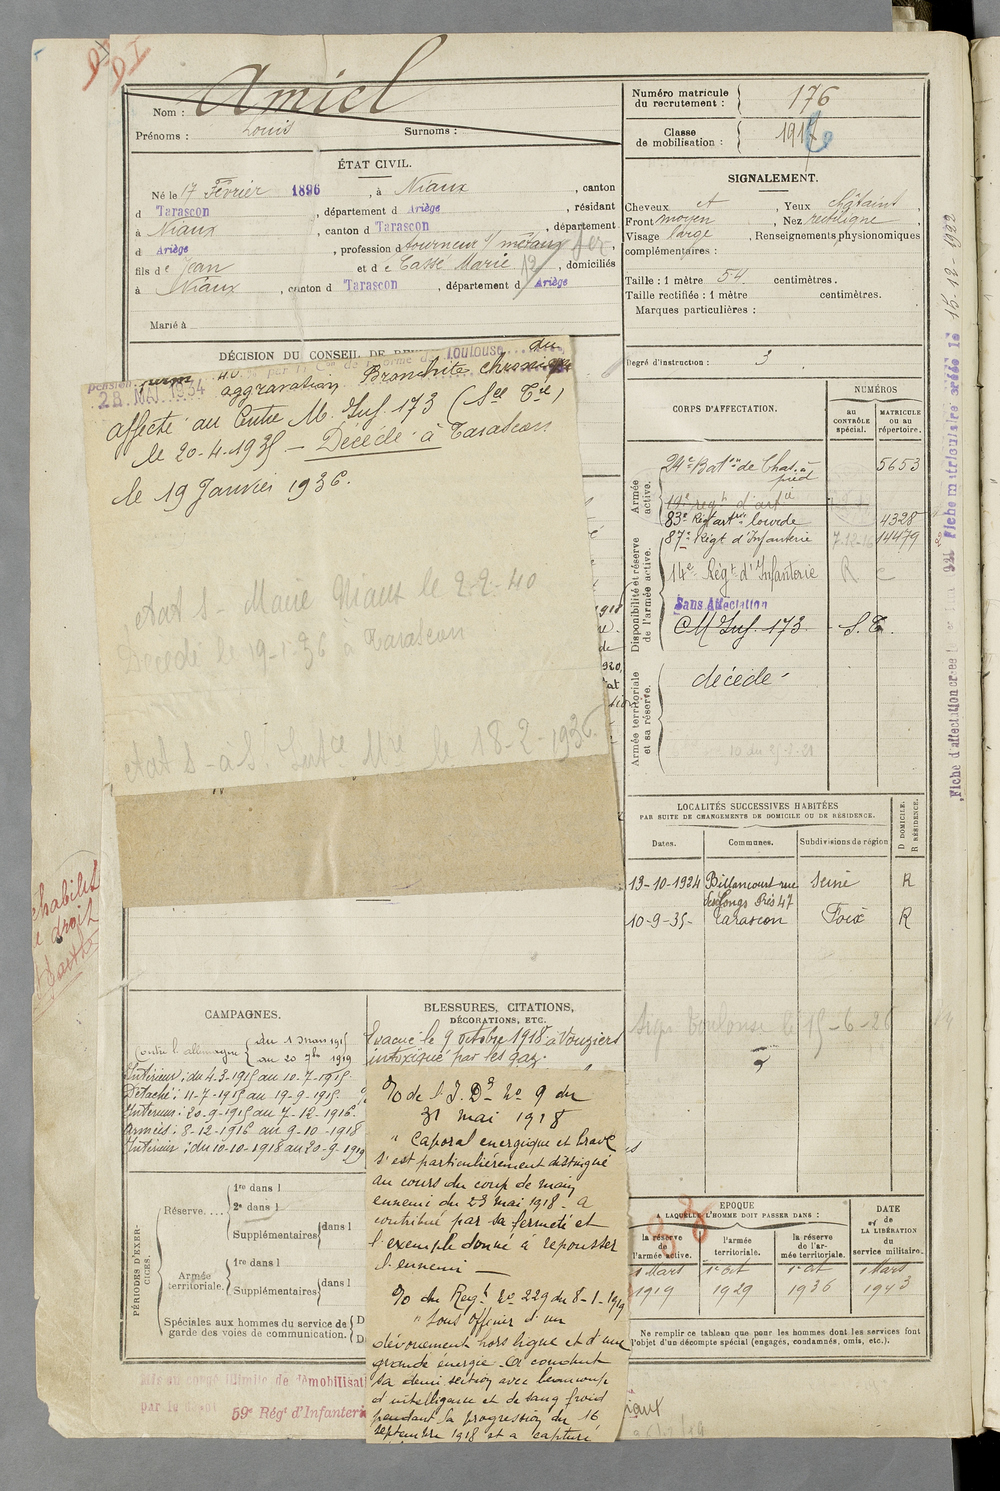 Nom : Amiel
Prénoms : Louis Surnoms :
ÉTAT CIVIL.
Né le 17 Février 1896, à Niaux, canton
d Tarascon, département d Ariège, résidant
à Niaux, canton d Tarascon, département
d Ariège, profession d tourneur s/ métaux
fils de Jean et de Cassé Marie, domiciliés
à Niaux, canton d Tarascon, département d Ariège
Marié à
DÉCISION DU CONSEIL DE
pension Toulouse du
28 1934 aggravation Bronchite chronique
affecté au Centre M. Inf. 173 (Sec Tre)
le 20-4-1935 - Décédé à Tarascon
le 19 Janvier 1936.
Marie Niaux le 2-2-40
Décédé le 19-1-36 à Tarascon
le 18-2-1936
1918
de
1920,
CAMPAGNES.
Contre l'allemagne { du 4 mars 1915
au 20 7bre 1919
Intérieur : du 4-3-1915 au 10-7-1915
Détaché : 11-7-1915 au 19-9-1915
Intérieur : 20-9-1915 au 7-12-1916
Armées : 8-12-1916 au 9-10-1918
Intérieur : du 10-10-1918 au 20-9-1919
BLESSURES, CITATIONS,
DÉCORATIONS, ETC.
Evacué le 9 octobre 1918 à Vouziers
intoxiqué par les gaz.
O/ de l'I. D. No 9 du
31 mai 1918
" Caporal energique et brave
s'est particulièrement distingué
au cours du coup de main
ennemi du 23 mai 1918. A
contribué par sa fermeté et
l'exemple donné à repousser
l'ennemi —
O/ du Regt No 229 du 8-1-1919
" Sous officier d'un
dévouement hors ligne et d'une
grande énergie. A conduit
sa demi section avec beaucoup
d'intelligence et de sang froid
pendant la progression du 16
septembre 1918 et a capturé
PÉRIODES D'EXERCICES.
Réserve....
1re dans l
2e dans l
Supplémentaires { dans l
Armée territoriale.
1re dans l
Supplémentaires { dans l
Spéciales aux hommes du service de
garde des voies de communication. { D
D
Mis en congé illimité de démobilisati
par le dépôt 59e Régt d'Infanterie
Numéro matricule
du recrutement : } 176
Classe
de mobilisation : } 1916
SIGNALEMENT.
Cheveux ct, Yeux châtains,
Front moyen, Nez rectiligne
Visage large, Renseignements physionomiques
complémentaires :
Taille : 1 mètre 54 centimètres.
Taille rectifiée : 1 mètre centimètres.
Marques particulières :
Degré d'instruction : 3
CORPS D'AFFECTATION.
NUMÉROS
au
CONTRÔLE
spécial.
MATRICULE
ou au
répertoire.
Armée active.
24e Baton de Chas. à pied 5653
19e regt d'artie
83e Régt artrie lourde 4328
87e Régt d'Infanterie 7-12-16 14479
Disponibilité et réserve
de l'armée active.
14e Régt d'Infanterie R c
Sans Affectation
CM Inf. 173 S. T.
Armée territoriale
et sa réserve.
décédé
LOCALITÉS SUCCESSIVES HABITÉES
PAR SUITE DE CHANGEMENTS DE DOMICILE OU DE RÉSIDENCE.
Dates. Communes. Subdivisions de région
D DOMICILE.
R RÉSIDENCE.
13-10-1924 Billancourt rue Seine R
des Longs Prés 47
10-9-35 Tarascon Foix R
Toulouse le 15-6-26
EPOQUE
A LAQUELLE L'HOMME DOIT PASSER DANS :
la réserve
de
l'armée active.
l'armée
territoriale.
la réserve
de l'ar-
mée territoriale.
DATE
de
LA LIBÉRATION
du
service militaire.
1 Mars
1919
1er oct
1929
1er oct
1936
1 Mars
1943
38
Ne remplir ce tableau que pour les hommes dont les services font
l'objet d'un décompte spécial (engagés, condamnés, omis, etc.).
Fiche matriculaire créée le 15-12-1922
Fiche d'affectation créée l